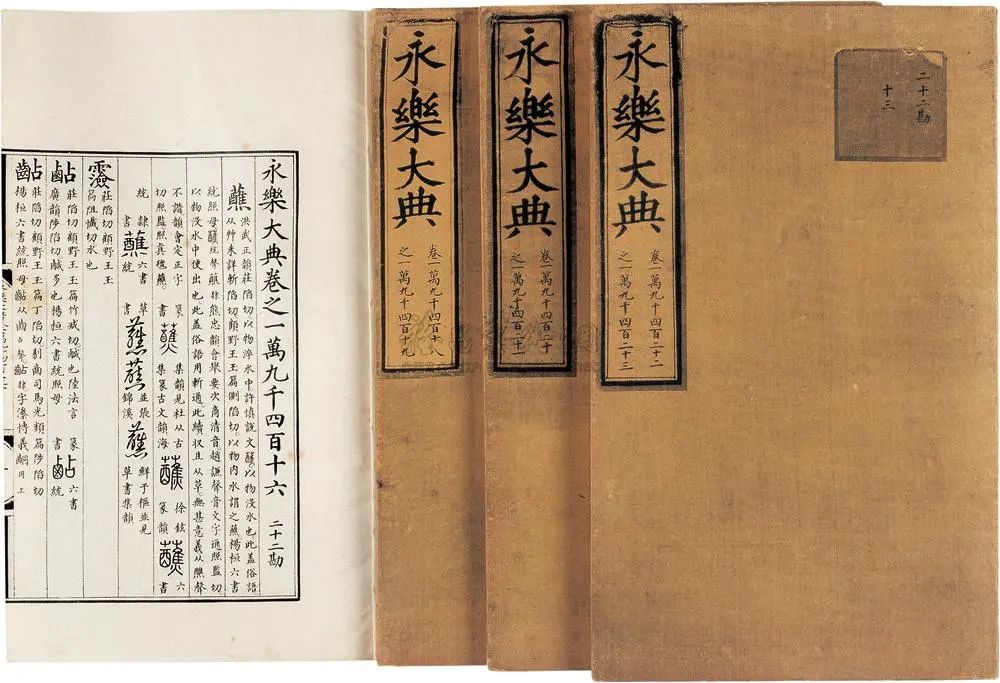 二十二勘
十三
永樂大典
卷一萬九千四百二十二
之一萬九千四百二十三
永樂大典
卷一萬九千四百二十
之一萬九千四百二十一
永樂大典
卷一萬九千四百十八
之一萬九千四百十九
永樂大典卷之一萬九千四百十六 二十二勘
蘸 洪武正韻莊陷切以物淬水中許慎說文醮以物沒水也此蓋俗語
从艸未詳斬陷切顧野王玉篇側陷切以物內水謂之蘸楊桓六書
統照母 聲蘸 忠韻會舉要次商清音趙謙聲音文字通照監切
以物沒水中便出也此蓋俗語用斬通此續收且从草無甚意義从醮聲
不諧韻會定正字 篆 蘸 集韻見杜从古 蘸 徐鉉 蘸 六
切照監照真氊蘸 書 集篆古文韻海 篆韻 書
統 隸 蘸 六書 草 蘸蘸 並張 蘸 鮮于樞並見
書 統 書 錦溪 草書集韻
莊陷切顧野王玉
篇阻懺切水也
莊陷切顧野王玉篇竹咸切鹹也陸法言 篆 六書
廣韻陟陷切鹹多也楊桓六書統照母 書 統
莊陷切顧野王玉篇丁陷切剔齒司馬光類篇陟陷切
楊桓六書統照母 从齒占聲 非字潫博義 同上